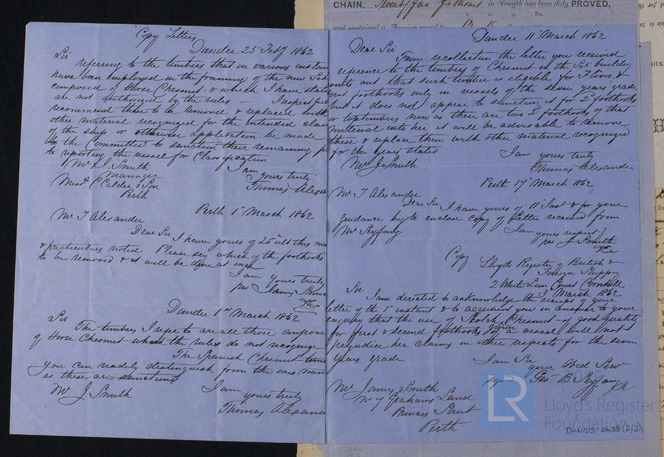 CHAIN,
in length has been duly PROVED,
Copy Letters
Dundee 25 Feby 1862
Sir
referring to the timbers that in various
have been employed in the framing of the new Ship
composed of Horse Chesnut & which I have
are not authorized by the rules
recommend these to be removed & replaced with
other material recognized for the intended class
of the ship or otherwise application be made
to the Committee to sanction their remaining
to reporting the vessel for Classification
I am
yours truly
Thomas Alexa
Mr J. Smith
Manager
Messrs Calder & Son
Perth
Perth 1st March 1862
Mr T Alexander
Dear Sir I have yours of 25 ult this
& particulars noted Please say which of the foothooks
to be removed & it will be done at once
I am Yours truly
Dundee 1st March 1862
Sir
The timbers I refer to are all those composed
of Horse Chesnut which the rules do not recognize
The Spanish Chesnut
you can readily distinguish from the ones
as these are sanctioned
I am
yours truly
Thomas Alexander
Mr J. Smith
Dundee 11 March 1862
Dear Sir
From recollection the letter you received
reference to the timbers of Chesnut the Ship building
only and that such timber is eligible for Floors &
1st foothooks only in vessels of the seven years grade
but it does not appear to sanction it for 2d foothooks
or toptimbers now as there are two 2 foothooks of that
material into her, it will be advisable to remove
these & replace them with other material recognized
for the class stated
I am yours truly
Thomas Alexander
Mr J. Smith
Perth 17 March 1862
Mr T Alexander
Dear Sir I have yours of 11 Inst & for your
Guidance beg to enclose copy of letter received from
Mr Seyfang
I am yours respect
J. Smith
Copy
Lloyds Registry of British &
Foreign Shipping
2 White Lion Court Cornhill
March 1862
Sir
I am directed to acknowledge the receipt of your
letter of the 1st instant & to acquaint you in answer to your
enquiry that the use of Chesnut of good quality
for first & second foothooks vessel shall not
prejudice her claims in other respects for the seven
years grade
I am Sir
your Obed Serv
Geo B Seyfang
Mr James Smith
Grahams Land
Princes Street
Perth
LR
Lloyd's Register
Foundation